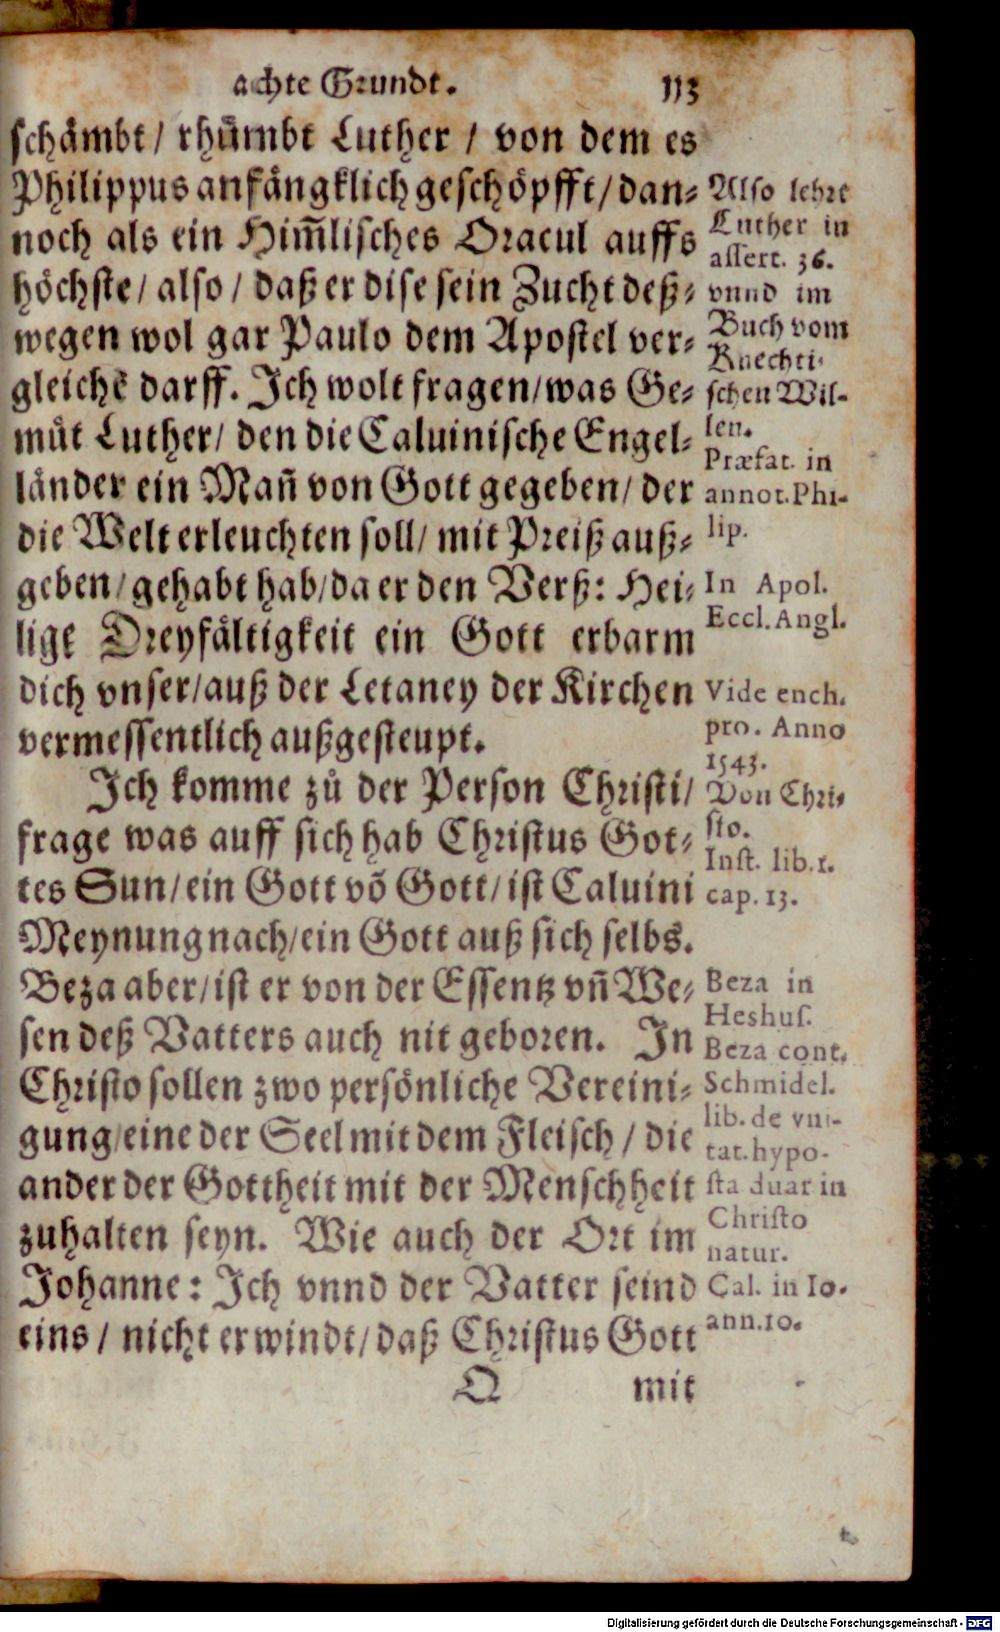 achte Grundt. 113
schämbt / rhümbt Luther / von dem es
Philippus anfängklich geschöpfft / dan-
noch als ein Him̃lisches Oracul auffs
höchste / also / daß er dise sein Zucht deß-
wegen wol gar Paulo dem Apostel ver-
gleichẽ darff. Ich wolt fragen / was Ge-
müt Luther / den die Caluinische Engel-
länder ein Mañ von Gott gegeben / der
die Welt erleuchten soll / mit Preiß auß-
geben / gehabt hab / da er den Verß: Hei-
lige Dreyfältigkeit ein Gott erbarm
dich vnser / auß der Letaney der Kirchen
vermessentlich außgesteupt.
Ich komme zů der Person Christi /
frage was auff sich hab Christus Got-
tes Sun / ein Gott võ Gott / ist Caluini
Meynung nach / ein Gott auß sich selbs.
Beza aber / ist er von der Essentz vñ We-
sen deß Vatters auch nit geboren. In
Christo sollen zwo persönliche Vereini-
gung / eine der Seel mit dem Fleisch / die
ander der Gottheit mit der Menschheit
zuhalten seyn. Wie auch der Ort im
Johanne: Ich vnnd der Vatter seind
eins / nicht erwindt / daß Christus Gott
Q mit
Also lehrt
Luther in
assert. 36.
vnnd im
Buch vom
Knechti-
schen Wil-
len.
Præfat. in
annot. Phi-
lip.
In Apol.
Eccl. Angl.
Vide ench.
pro. Anno
1543.
Von Chri-
sto.
Inst. lib. 1.
cap. 13.
Beza in
Heshus.
Beza cont.
Schmidel.
lib. de vni-
tat. hypo-
sta duar in
Christo
natur.
Cal. in Io-
ann. 10.
Digitalisierung gefördert durch die Deutsche Forschungsgemeinschaft - DFG